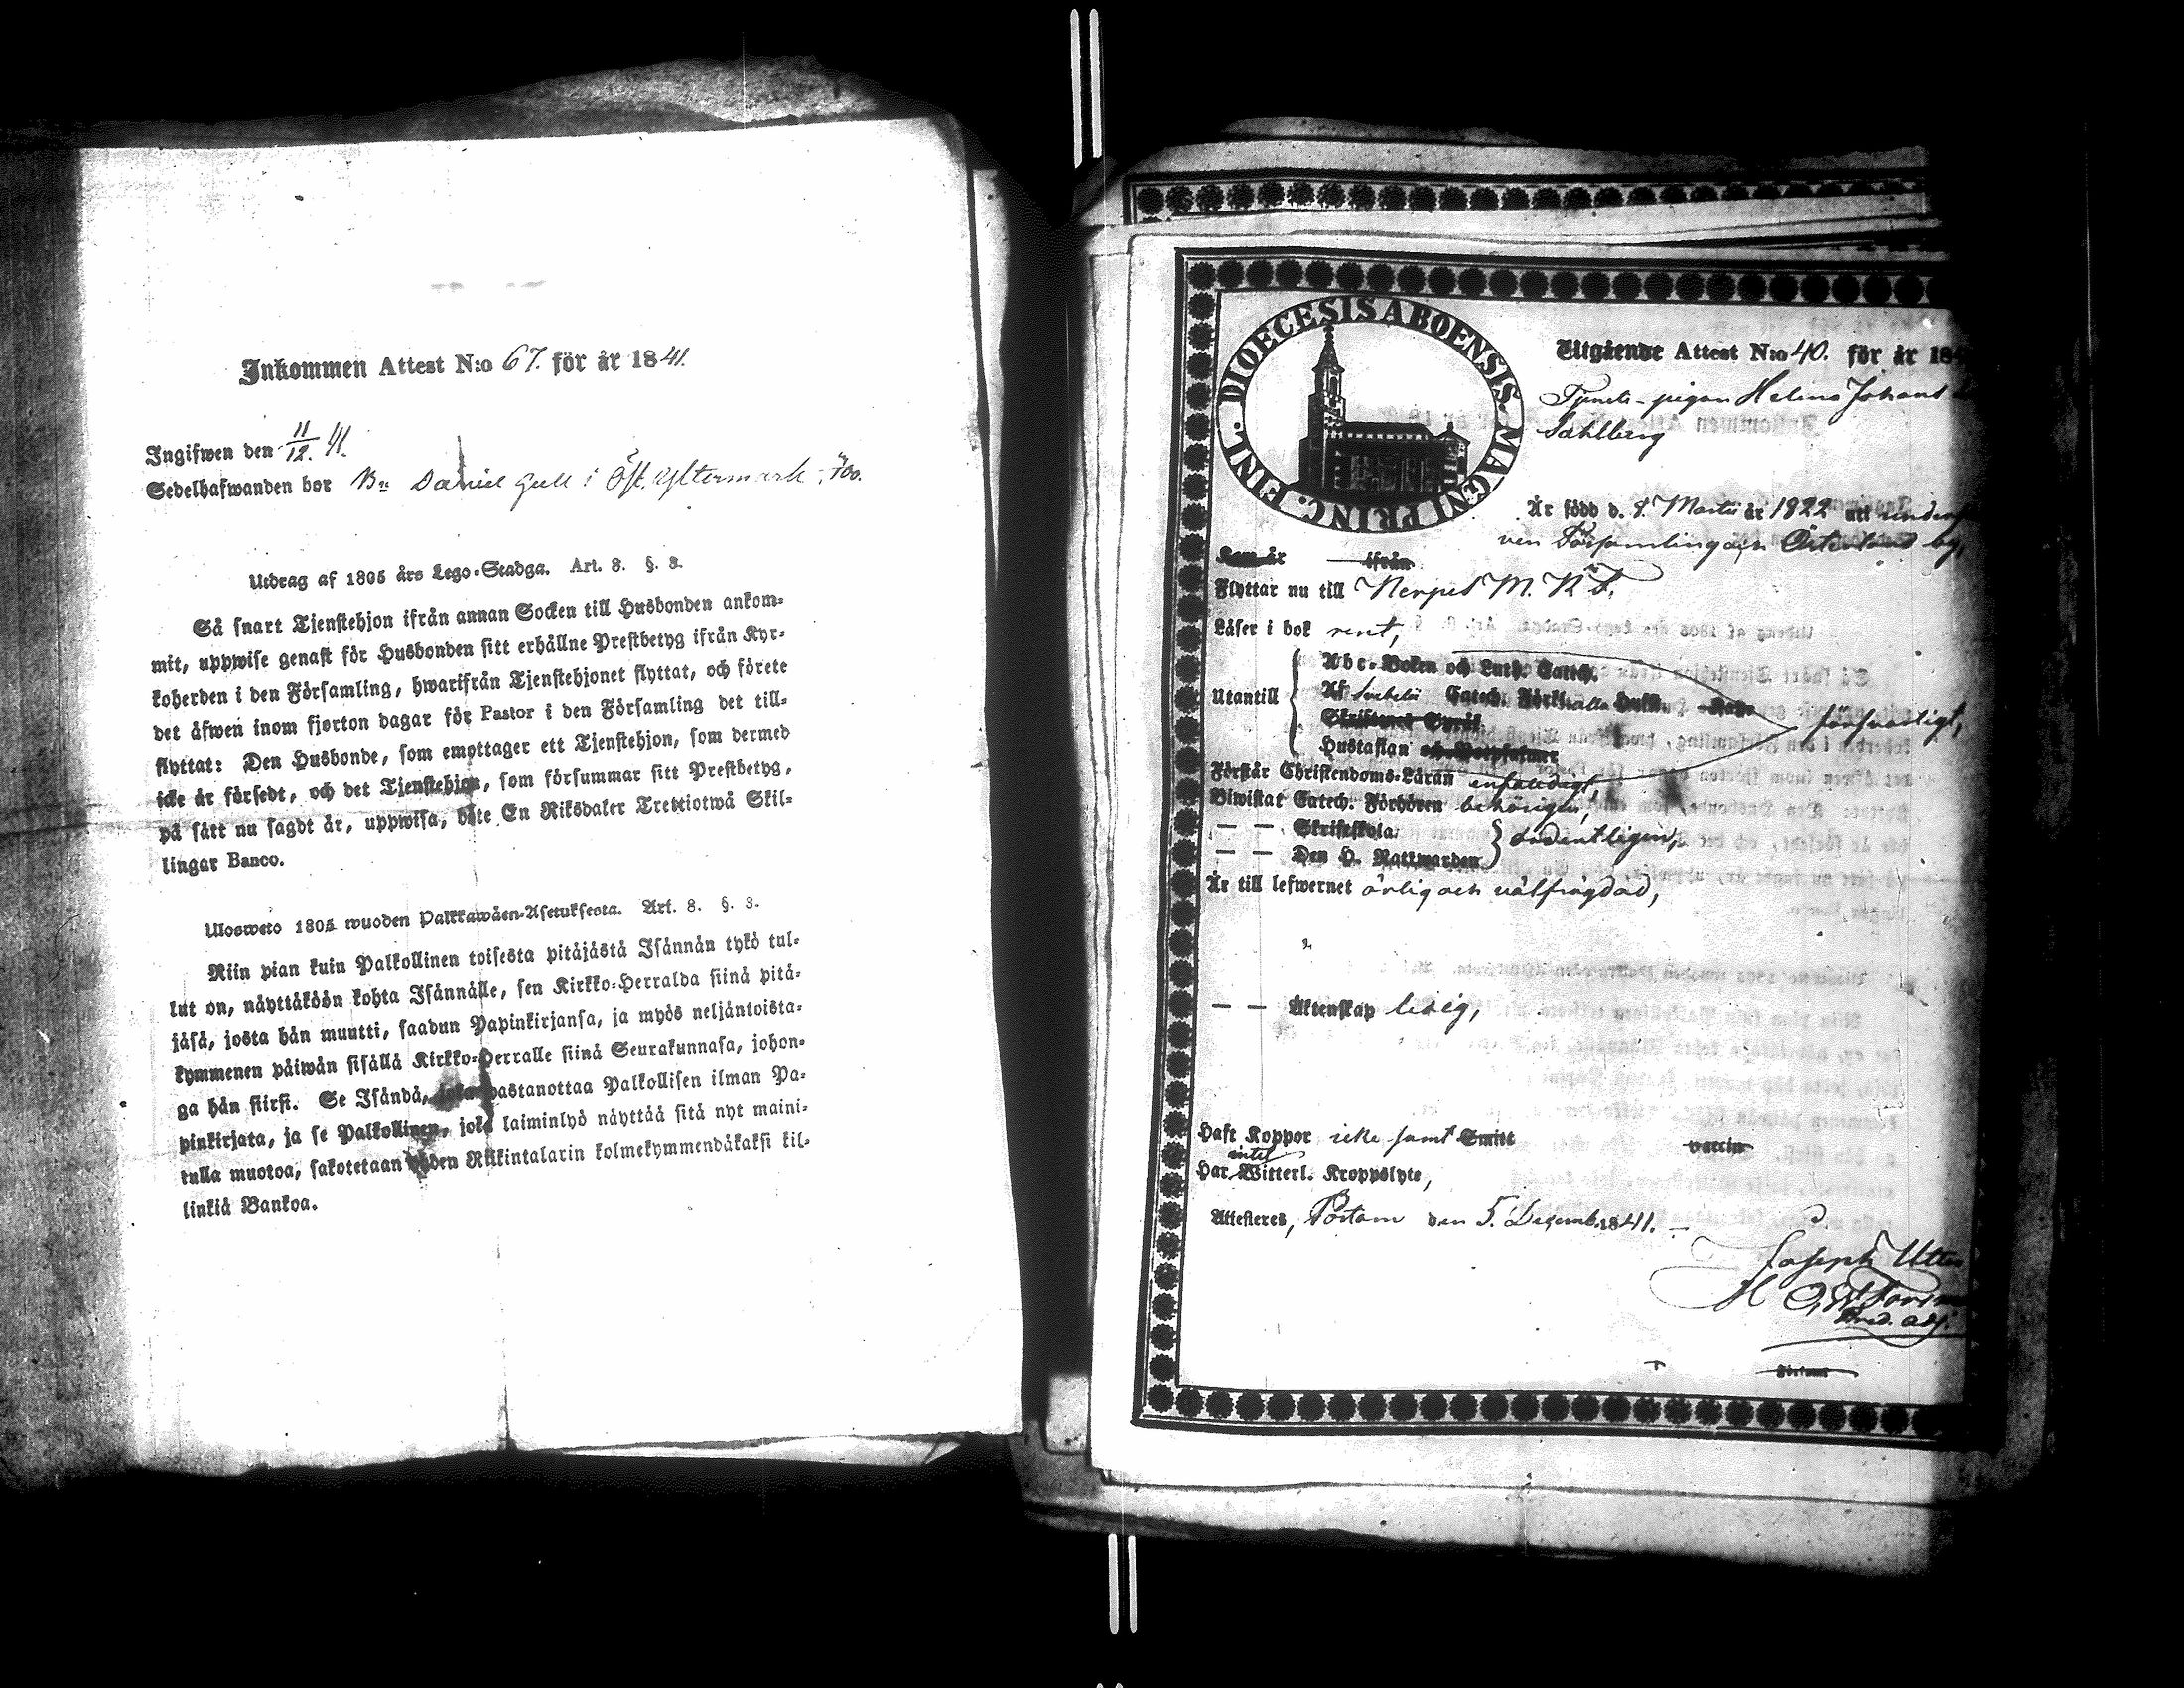 Inkommen Attest N:o 67. för år 1841.
Ingifwen den 11/12. 41.
Sedelhafwanden bor Bn Daniel Gull i Öst. Yttermark
Utdrag af 1805 års Lego-Stadga. Art. 8. §. 3.
Så snart Tjenstehjon ifrån annan Socken till Husbonden ankom-
mit, uppwise genast för Husbonden sitt erhållne Prestbetyg ifrån Kyr-
koherden i den Församling, hwarifrån Tjenstehjonet flyttat, och förete
det äfwen inom fjorton dagar för Pastor i den Församling det till-
flyttat: Den Husbonde, som emottager ett Tjenstehjon, som dermed
icke är försedt, och det Tjenstehjon, som försummar sitt Prestbetyg,
på sätt nu sagdt är, uppwisa, böte En Riksdaler Trettiotwå Skil-
lingar Banco.
Ulosweto 1805 wuoden Palkkawäen-Asetuksesta. Art. 8. §. 3.
Niin pian kuin Palkollinen toisesta pitäjästä Isännän tykö tul-
lut on, näyttäköön kohta Isännälle, sen Kirkko-Herralda siinä pitä-
jäsä, josta hän muutti, saadun Papinkirjansa, ja myös neljäntoista-
kymmenen päiwän sisällä Kirkko-Herralle siinä Seurakunnasa, johon-
ga hän siirsi. Se Isändä, joka wastanottaa Palkollisen ilman Pa-
pinkirjata, ja se Palkollinen, joka laiminlyö näyttää sitä nyt maini-
tulla muotoa, sakotetaan yhden Riikintalarin kolmekymmendäkaksi kil-
linkiä Bankoa.
DIOECESIS ABOENSIS MAGNI PRINC. FINL.
Utgående Attest N:o 40. för år 184
Tjenste-pigan Helena Johans
Sahlberg
Är född d. 8 Martii år 1822 uti
ven Församling och Österland by,
Kom år ifrån
Flyttar nu till Nerpes M. K. F.
Läser i bok rent,
Utantill
Abc-Boken och Luth. Catech.
Af Svebelii Catech. Förkl. alla Hufst.
Skriftenes Språk
Hustaflan och Botpsalmer
försvarligt,
Förstår Christendoms-Läran enfaldigt,
Biwistat Catech. Förhören behörigen,
— — Skriftskola
— — Den H. Nattwarden
ordentligen,
Är till lefwernet ärlig och välfrägdad,
— — Äktenskap ledig,
Haft Koppor icke samt Smitt vaccin
Har intet Witterl. Kroppslyte,
Attesteres, Pörtom den 5. Decemb. 1841.
Joseph